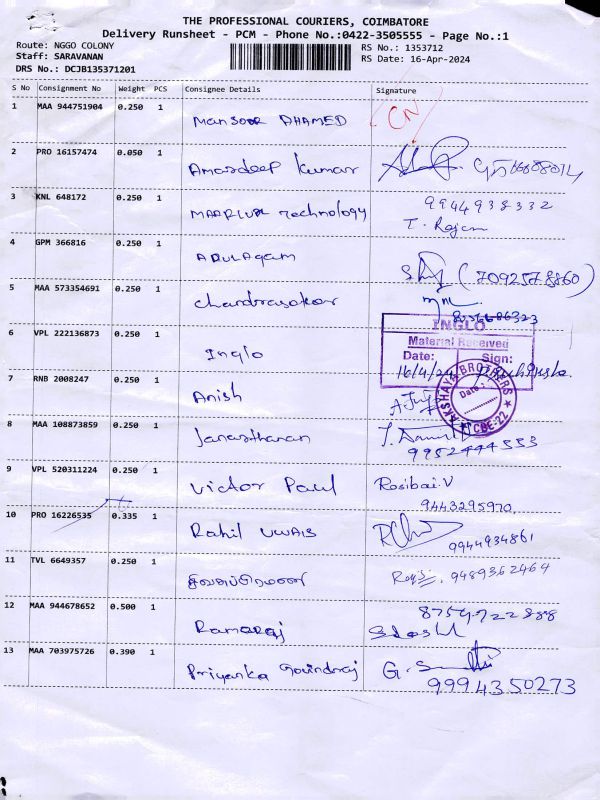 THE PROFESSIONAL COURIERS, COIMBATORE
Delivery Runsheet - PCM - Phone No.:0422-3505555 - Page No.:1
Route: NGGO COLONY RS No.: 1353712
Staff: SARAVANAN RS Date: 16-Apr-2024
DRS No.: DCJB135371201
S No Consignment No Weight PCS Consignee Details Signature
1 MAA 944751904 0.250 1
Mansoor AHAMED CN
2 PRO 16157474 0.050 1
Amardeep kumar
3 KNL 648172 0.250 1 9944938332
Technology T. Rajan
4 GPM 366816 0.250 1
ARULAGAM (7092578860)
5 MAA 573354691 0.250 1
chandrasekar
6 VPL 222136873 0.250 1 INGLO
Material Received
Inglo Date: Sign:
16/4/24
7 RNB 2008247 0.250 1 AKSHAYA BROTHERS
Date:
CBE-22
Anish
8 MAA 108873859 0.250 1
Janarthanan 9952444553
9 VPL 520311224 0.250 1
Victor Paul Rosibai.V
9443295970
10 PRO 16226535 0.335 1
Rahil UWAIS 9944934861
11 TVL 6649357 0.250 1
9489362464
12 MAA 944678652 0.500 1 8754722888
Ramaraj
13 MAA 703975726 0.390 1
Priyanka Govindraj G.
9994350273